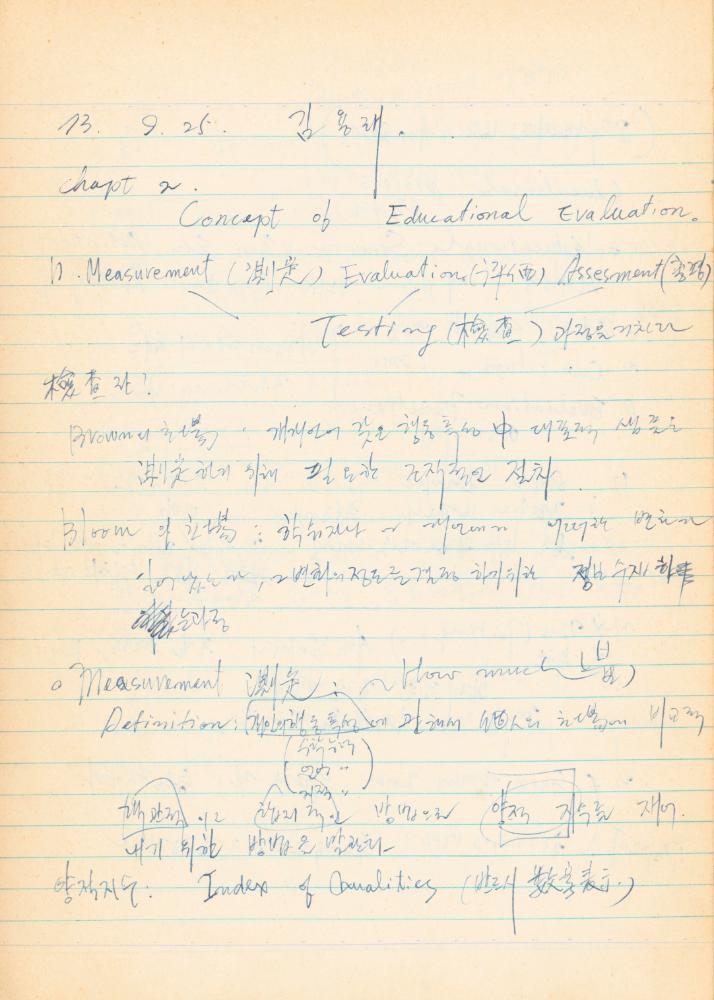 13. 9. 25. 김용래.
chapt 2.
Concept of Educational Evaluation.
1). Measurement (測定) Evaluation (評価) Assesment (총평)
Testing (検査) 과정을 거치다
検査란?
Brown의 개인이 갖은 행동특성 中 대표적 샘플을
測定하기 위해 필요한 조직적인 절차
Bloom 의 : 학습자나 어떠한 변화가
일어났는가, 그 변화의 정도를 결정하기 위한 수집
는 과정
o Measurement 測定 : ~ How much
Definition : 개인의 행동특성에 관해서 비교적
수학능력
언어 〃
지적 〃
객관적이고 합리적인 방법으로 양적 지수를 재어.
내기 위한 방법을 말한다-
양적지수 : Index of Qualities (반드시 数字表示.)